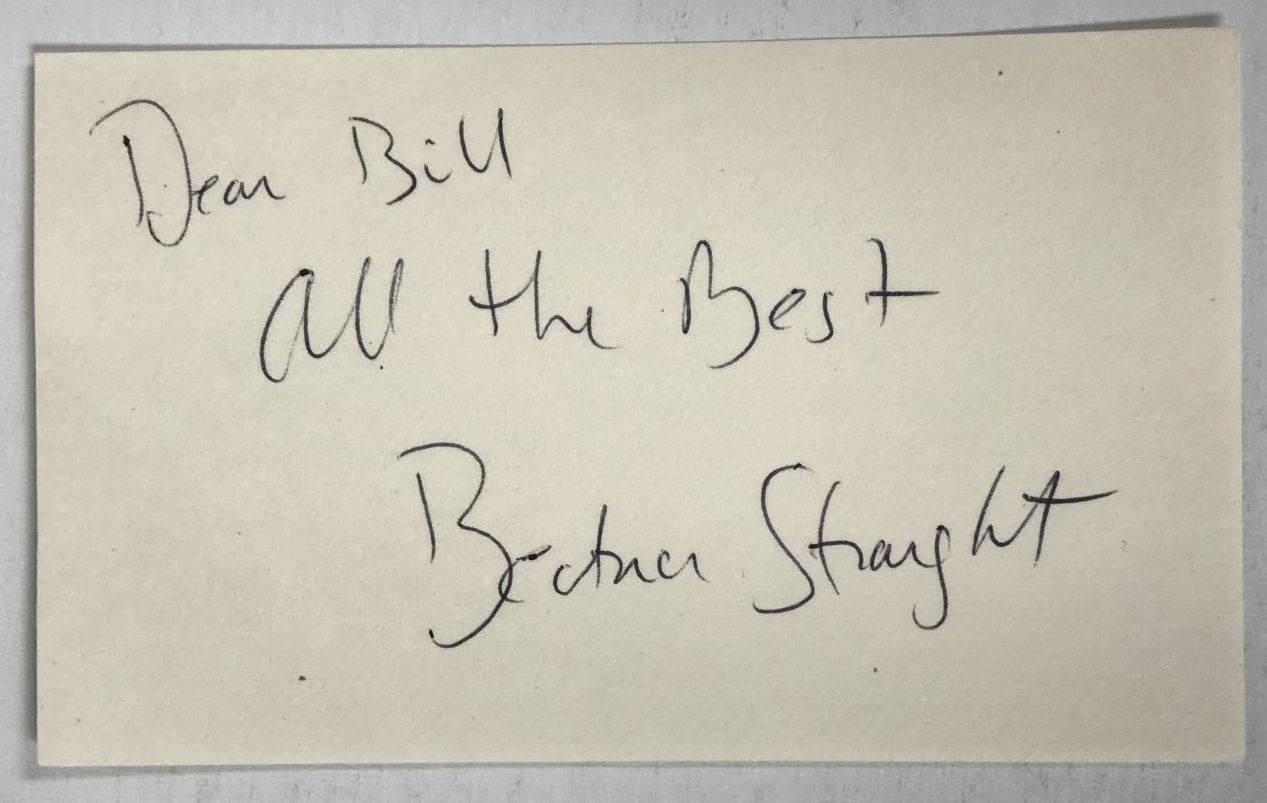 Dear Bill
All the Best
Beatrice Straight